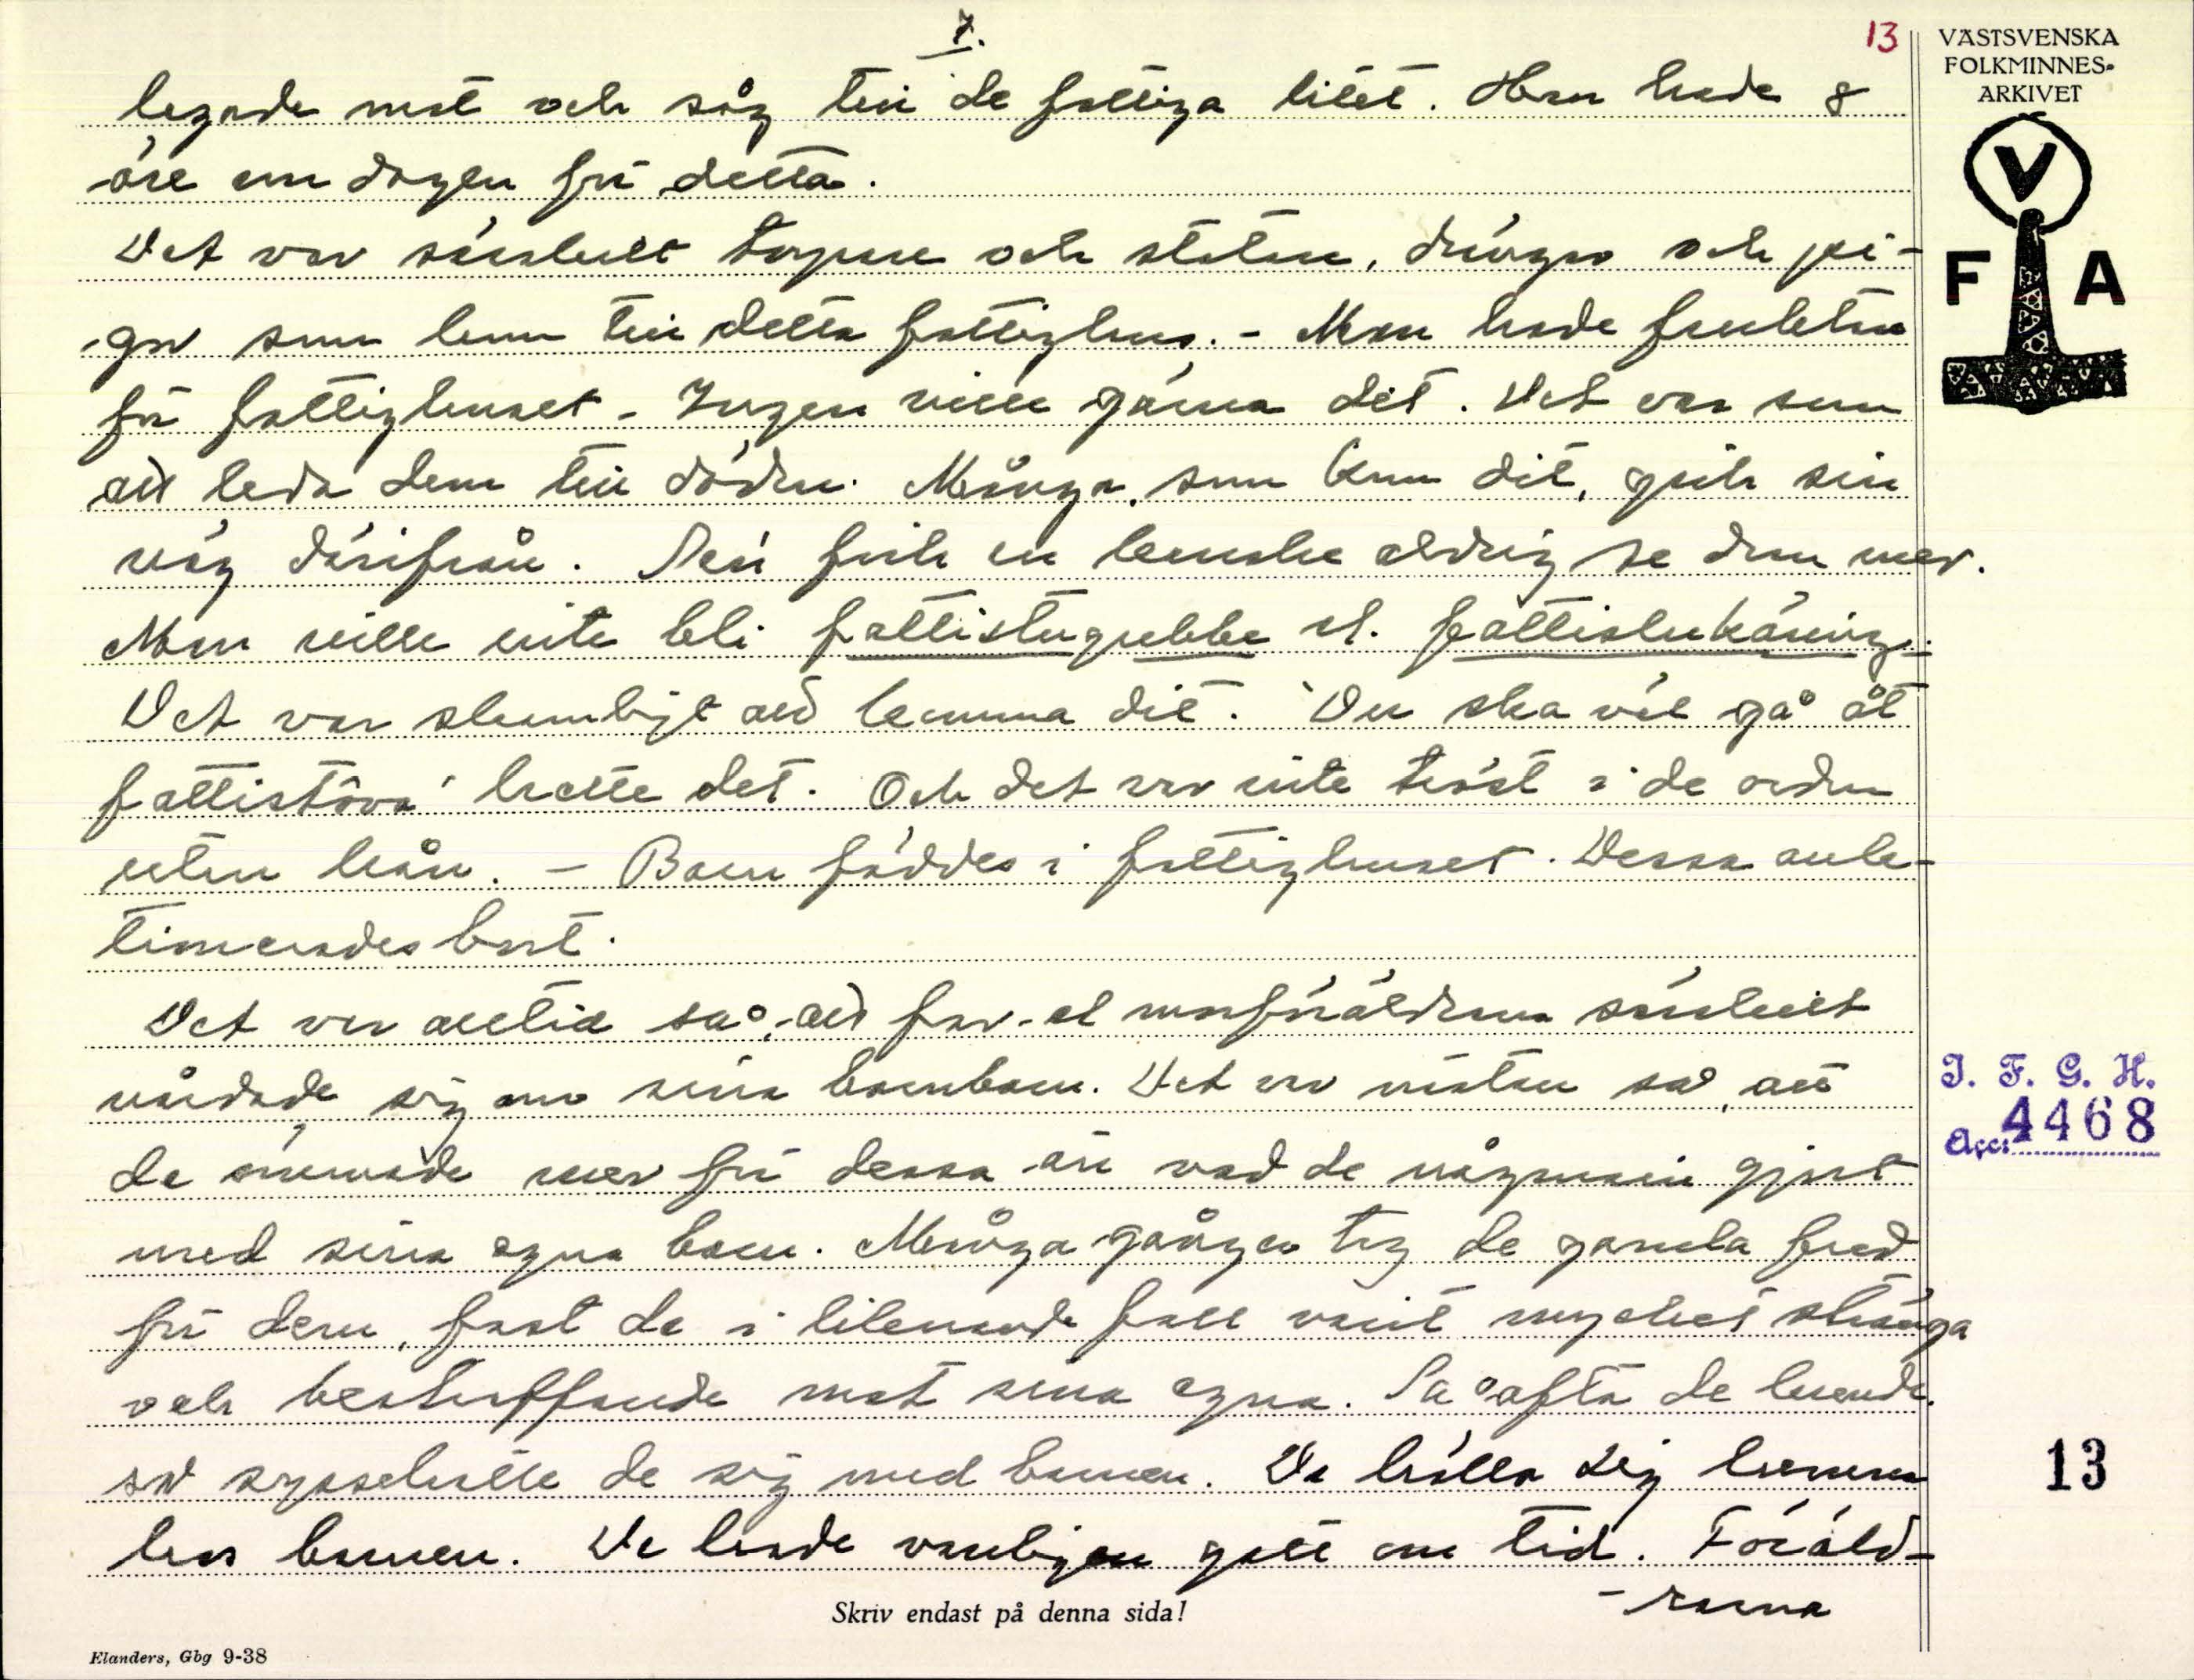 7.
13
VÄSTSVENSKA
FOLKMINNES-
ARKIVET
V
F A
lagade mat och såg till de fattiga litet. Han hade 8
öre om dagen för detta.
Det var särskilt torpare och statare, drängar och pi-
gor som kom till detta fattighus. - Man hade fruktan
för fattighuset - Ingen ville gärna dit. Det var som
att leda dem till döden. Många, som kom dit, gick sin
väg därifrån. Sen fick en kanske aldrig se dem mer.
Man ville inte bli fattistugubbe el. fattistukäring.
Det var skamligt att komma dit. "Du ska väl gå åt
fattistôva" hette det. Och det var inte tröst i de orden
utan hån. - Barn föddes i fattighuset. Dessa auk-
tionerades bort.
Det var alltid så, att far- el morföräldrarna särskilt
vårdade sig om sina barnbarn. Det var nästan så, att
de ömmade mer för dessa än vad de någonsin gjort
med sina egna barn. Många gånger tog de gamla fred
för dem, fast de i liknande fall varit mycket stränga
och bestraffande mot sina egna. Så ofta de kunde
så sysselsatte de sig med barnen. De hålla sig hemma
hos barnen. De hade vanligen gott om tid. Föräld-
-rarna
I. F. G. H.
Acc. 4468
13
Skriv endast på denna sida!
Elanders, Gbg 9-38